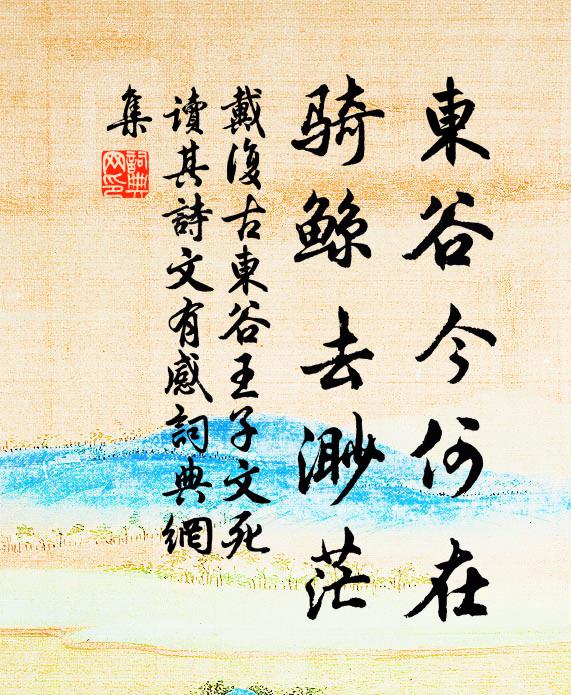 東谷今何在
骑鲸去渺茫
戴復古東谷王子文死
讀其詩文有感詞典網
集
詞典网印